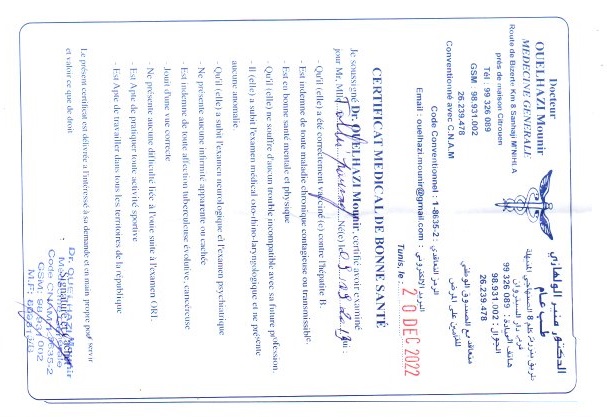 Docteur
OUELHAZI Mounir
MEDECINE GENERALE
Route de Bizerte Km 8 Sanhaji M'NIHLA
près de maison Citrouen
Tél : 99 326 089
GSM : 98.931.002
26.239.478
Conventionné avec C.N.A.M
الدكتور منير الولهازي
طب عام
طريق بنزرت كلم 8 السنهاجي المنيهلة
قرب دار السيتروان
هاتف العيادة : 99 326 089
الجوال : 98.931.002
26.239.478
متعاقد مع الصندوق الوطني
للتأمين على المرض
Code Conventionnel : 1-8635-2 : الرمز التعاقدي
Email : ouelhazi.mounir@gmail.com : البريد الإلكتروني
Tunis, le : 20 DEC 2022
CERTIFICAT MEDICAL DE BONNE SANTÉ
Je soussigné Dr. OUELHAZI Mounir, certifié avoir examiné
jour Mr, Mlle Né(e) le qui :
- Qu'il (elle) a été correctement vacciné (e) contre l'hépatite B.
- Est indemne de toute maladie chronique contagieuse ou transmissible.
- Est en bonne santé mentale et physique
- Qu'il (elle) ne souffre d'aucun trouble incompatible avec sa future profession.
- Il (elle) a subit l'examen médical oto-rhino-laryngologique et ne présente
aucune anomalie.
- Qu'il (elle) a subit l'examen neurologique et l'examen psychiatrique
- Ne présente aucune infirmité apparente ou cachée
- Est indemne de toute affection tuberculeuse évolutive, cancéreuse
- Jouit d'une vue correcte
- Ne présente aucune difficulté liée à l'ouïe suite à l'examen ORL
- Est Apte de pratiquer toute activité sportive
- Est Apte de travailler dans tous les territoires de la république
Le présent certificat est délivrée a l'intéressé à sa demande et en mains propre pour servir
et valoir ce que de droit.
Signature et cachet
Dr. OUELHAZI Mounir
GSM: 98.931.002